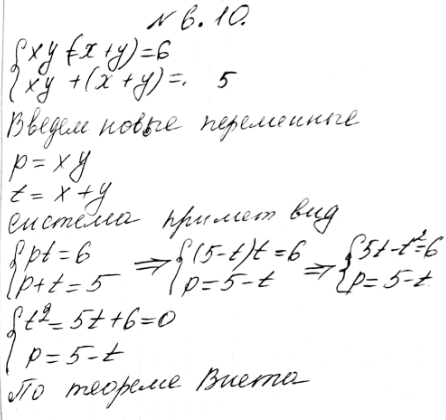 № 6.10.
{xy(x+y)=6
{xy+(x+y)=. 5
Введем новые переменные
p=xy
t=x+y
система примет вид
{pt=6 ⇒ {(5-t)t=6 ⇒ {5t-t²=6
{p+t=5 {p=5-t {p=5-t
{t²=5t+6=0
{p=5-t
По теореме Виета